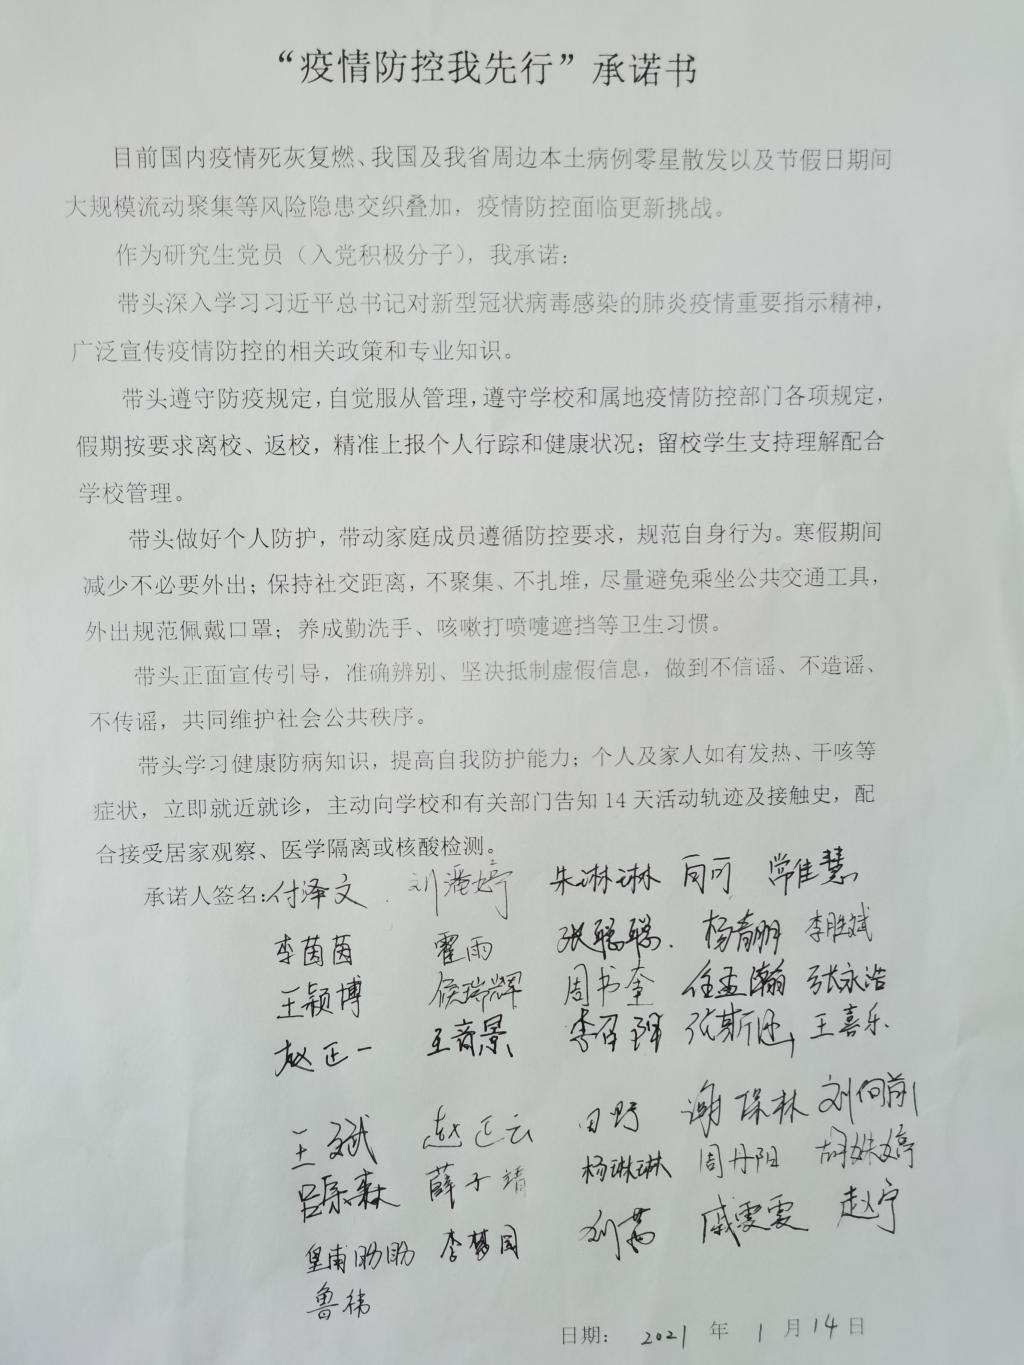 “疫情防控我先行”承诺书
目前国内疫情死灰复燃、我国及我省周边本土病例零星散发以及节假日期间
大规模流动聚集等风险隐患交织叠加，疫情防控面临更新挑战。
作为研究生党员（入党积极分子），我承诺：
带头深入学习习近平总书记对新型冠状病毒感染的肺炎疫情重要指示精神，
广泛宣传疫情防控的相关政策和专业知识。
带头遵守防疫规定，自觉服从管理，遵守学校和属地疫情防控部门各项规定，
假期按要求离校、返校，精准上报个人行踪和健康状况；留校学生支持理解配合
学校管理。
带头做好个人防护，带动家庭成员遵循防控要求，规范自身行为。寒假期间
减少不必要外出；保持社交距离，不聚集、不扎堆，尽量避免乘坐公共交通工具，
外出规范佩戴口罩；养成勤洗手、咳嗽打喷嚏遮挡等卫生习惯。
带头正面宣传引导，准确辨别、坚决抵制虚假信息，做到不信谣、不造谣、
不传谣，共同维护社会公共秩序。
带头学习健康防病知识，提高自我防护能力；个人及家人如有发热、干咳等
症状，立即就近就诊，主动向学校和有关部门告知14天活动轨迹及接触史，配
合接受居家观察、医学隔离或核酸检测。
承诺人签名：付泽文 朱琳琳 闫可 常佳慧
李茵茵 霍雨 张聪聪 杨青鹏 李胜斌
王颖博 侯瑞辉 周书奎 任孟瀚 张永浩
赵正一 王育景 王喜乐
王斌 赵正云 田野 谢保林 刘向前
吕宗森 薛子靖 杨琳琳 周丹阳 胡姝婷
皇甫盼盼 李梦园 戚雯雯 赵宁
鲁祎
日期： 2021 年 1 月 14 日